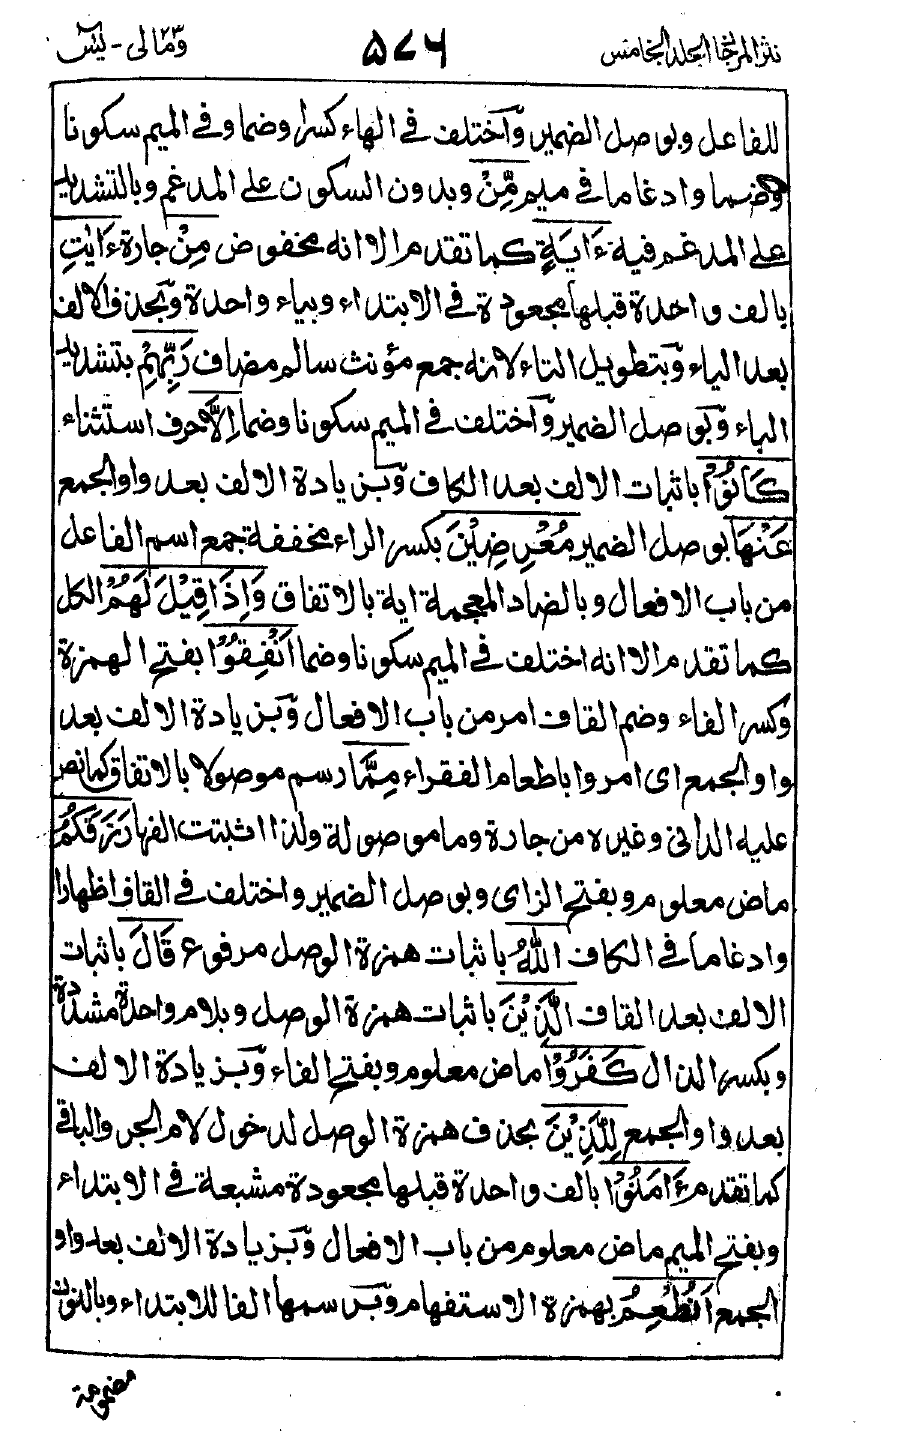 نثر المرجان الجلد الخامس ٥٧٦ وَمَالِىَ - يٰسٓ
للفاعل وبوصل الضمير وَاختلف فى الهاء كسرا وضما وفى الميم سكونا
وضما وادغاما فى ميم مِّنْ وبدون السكون على المدغم وبالتشديد
على المدغم فيه ءَايَةٍ كما تقدم الا انه مخفوض مِنْ جارة ءَايٰتِ
بالف واحدة قبلها مجعودة فى الابتداء وبياء واحدة وَبحذف الالف
بعد الياء وَبتطويل التاء لانه جمع مؤنث سالم مضاف رَبِّهِمْ بتشديد
الباء وَبوصل الضمير وَاختلف فى الميم سكونا وضما اِلَّا حرف استثناء
كَانُوْا باثبات الالف بعد الكاف وَبزيادة الالف بعد واو الجمع
عَنْهَا بوصل الضمير مُعْرِضِيْنَ بكسر الراء مخففة جمع اسم الفاعل
من باب الافعال وبالضاد المعجمة اية بالاتفاق وَاِذَا قِيْلَ لَهُمْ الكل
كما تقدم الا انه اختلف فى الميم سكونا وضما اَنْفِقُوْا بفتح الهمزة
وكسر الفاء وضم القاف امر من باب الافعال وَبزيادة الالف بعد
واو الجمع اى امروا باطعام الفقراء مِمَّا رسم موصولا بالاتفاق كما نص
عليه الدانى وغيره من جارة وما موصولة ولذا اثبتت الفها رَزَقَكُمُ
ماض معلوم وبفتح الزاى وبوصل الضمير واختلف فى القاف اظهارا
وادغاما فى الكاف اللّٰهُ باثبات همزة الوصل مرفوع قَالَ باثبات
الالف بعد القاف الَّذِيْنَ باثبات همزة الوصل وبلام واحدة مشددة
وبكسر الذال كَفَرُوْا ماض معلوم وبفتح الفاء وَبزيادة الالف
بعد واو الجمع لِلَّذِيْنَ بحذف همزة الوصل لدخول لام الجر والباقى
كما تقدم ءَامَنُوْا بالف واحدة قبلها مجعودة مشبعة فى الابتداء
وبفتح الميم ماض معلوم من باب الافعال وَبزيادة الالف بعد واو
الجمع اَنُطْعِمُ بهمزة الاستفهام وَبرسمها الفا للابتداء وبالنون
مضمومة